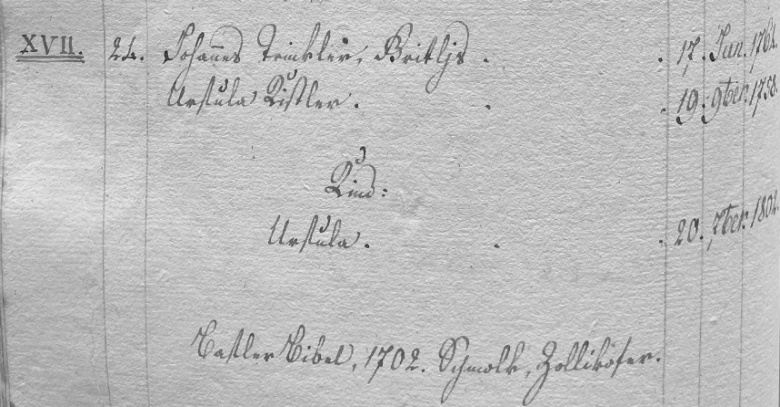 XVII. 24. Johannes Trinkler, Britljs . . 17. Jan. 1762.
Urſula Kiſtler . . . 19. 9ber. 1758.
Kind:
Urſula . . . 20. 7ber. 1802.
Baſler Bibel, 1702. Schmolk, Zollikofer.